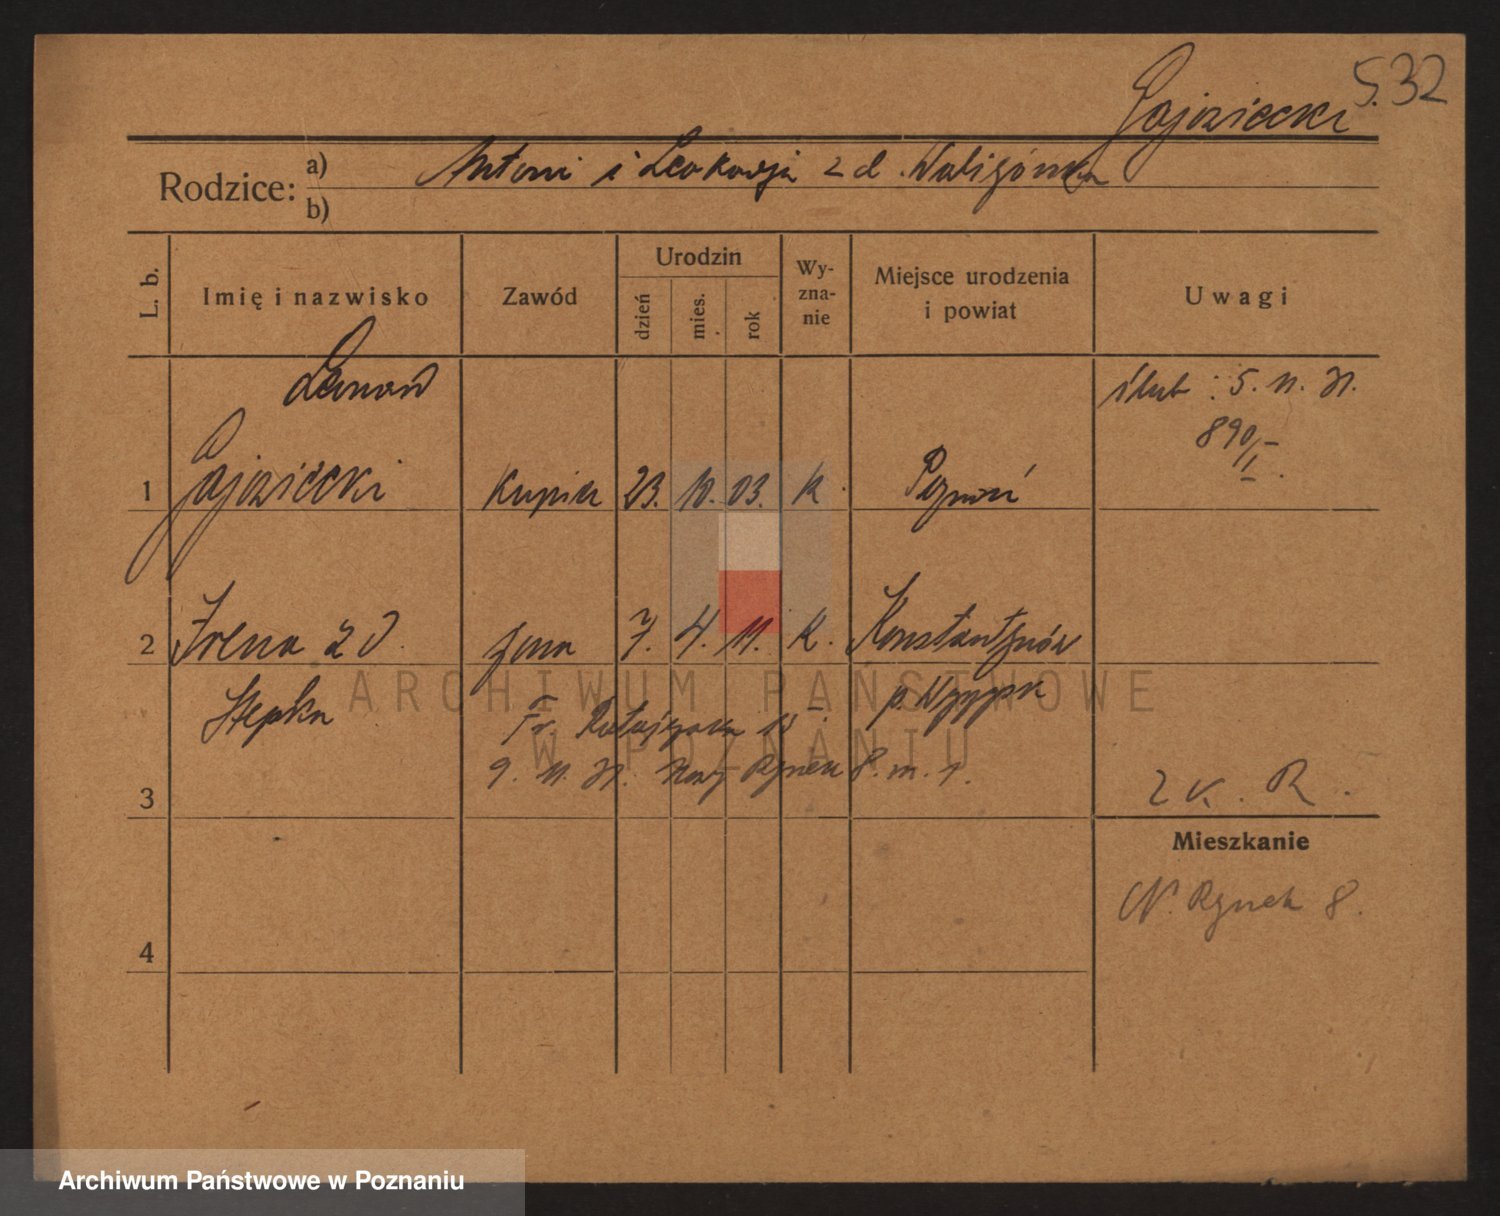 532
Gajowiecki
Rodzice: a) Antoni i Leokadja z d. Waligórska
b)
L. b. Imię i nazwisko Zawód Urodzin dzień mies. rok Wy-zna-nie Miejsce urodzenia i powiat Uwagi
Leonard ślub: 5. 11. 31.
890/II
1 kupiec 23. 10. 03. k. Poznań
2 Irena z d. żona 7. 4. 11. k. Konstantynów
Stepka p. Wyrzysk
Fr. Ratajczaka
9. 11. 31. Nowy Rynek 8. m. 1.
3 2 k. R.
Mieszkanie
N. Rynek 8.
4
ARCHIWUM PAŃSTWOWE
W POZNANIU
Archiwum Państwowe w Poznaniu